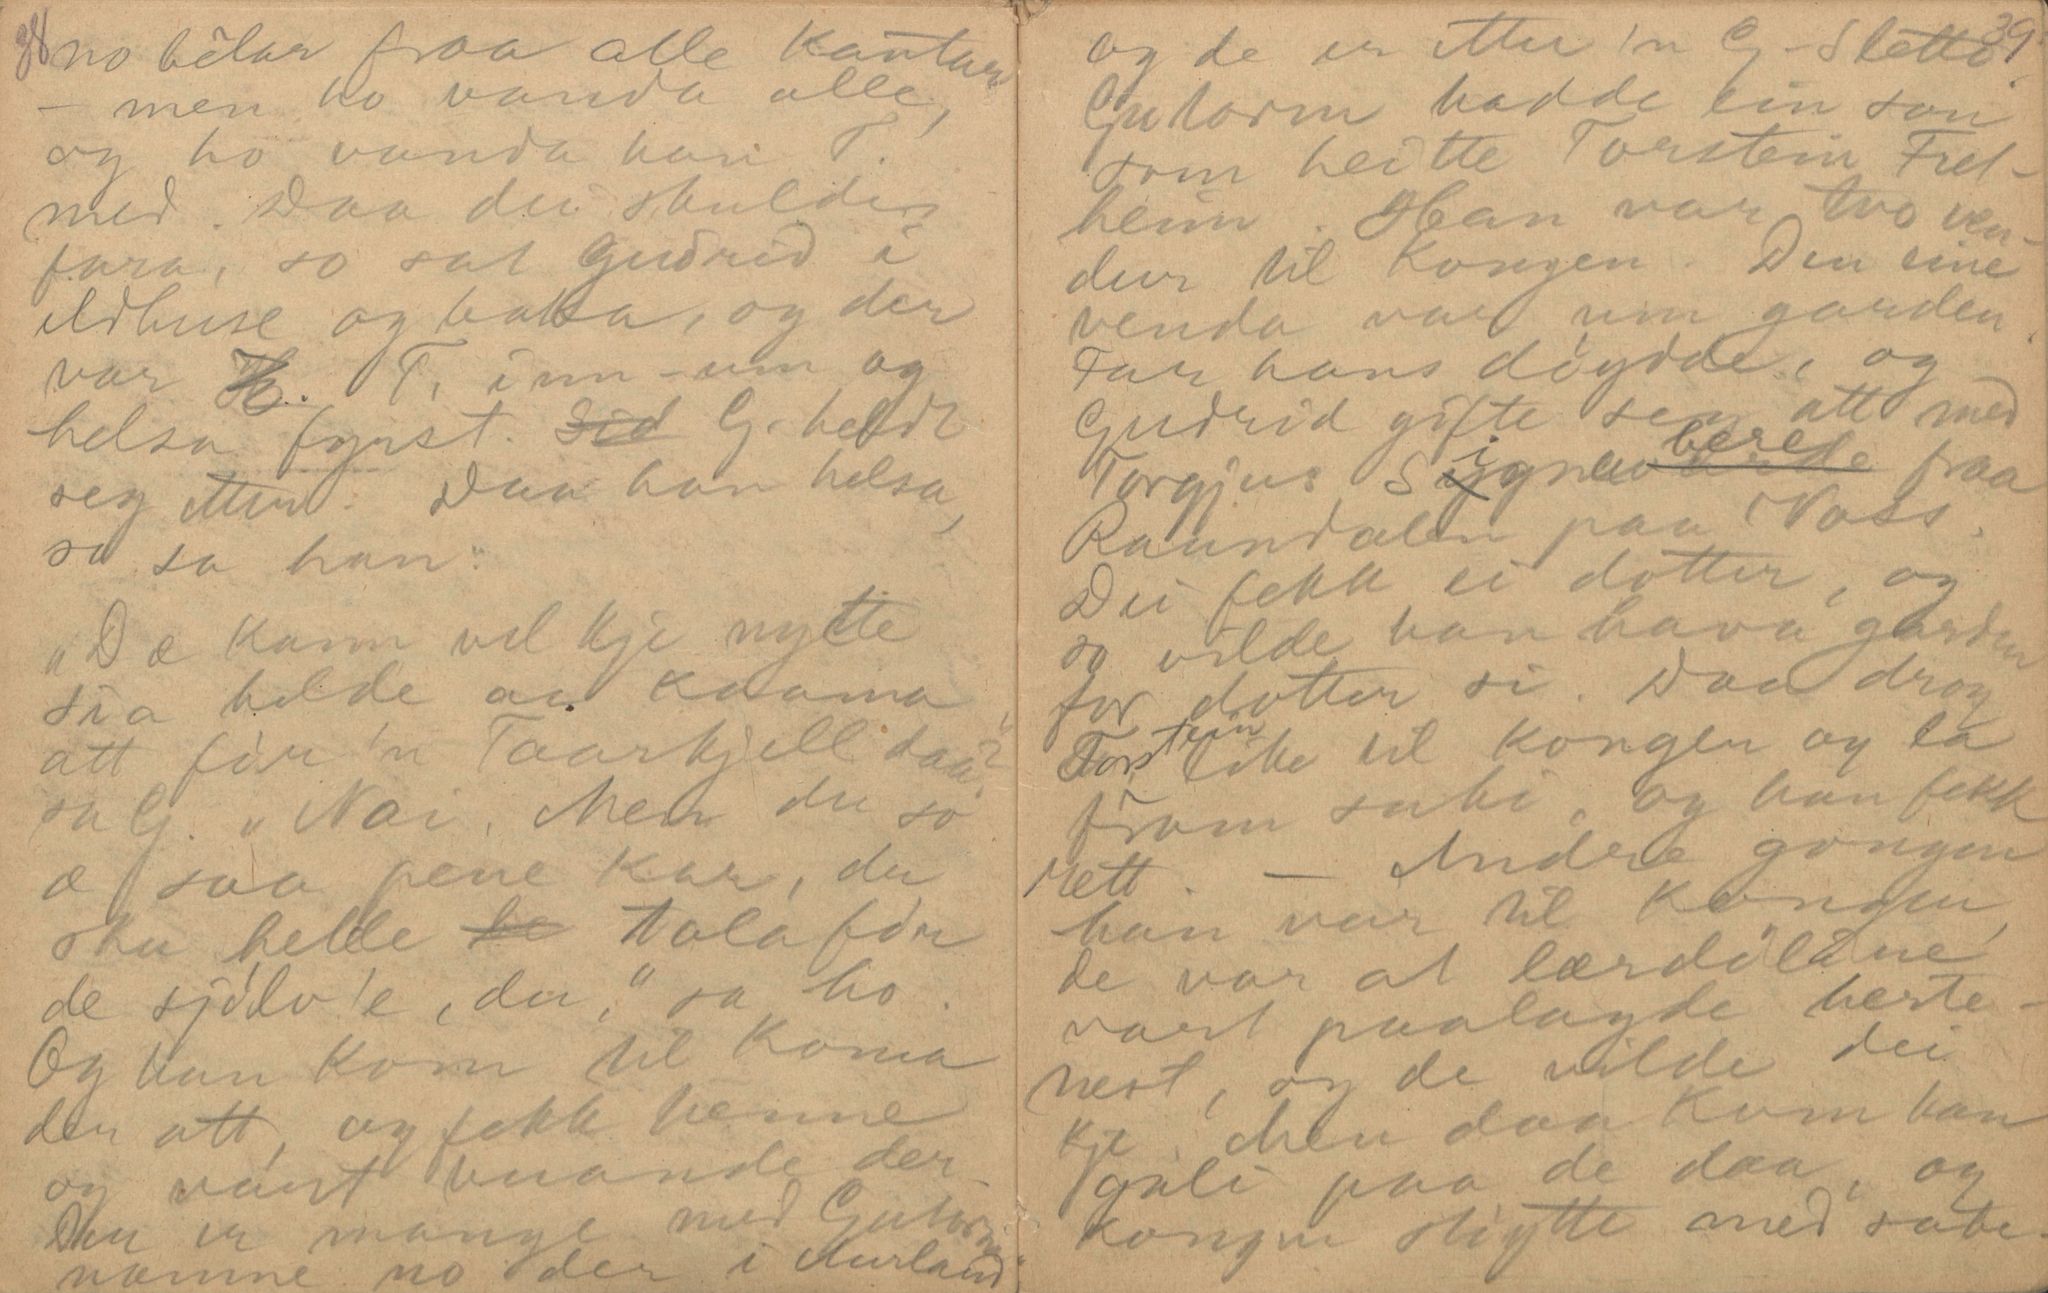 38
no bêlar fraa alle kantar
- men ho vanda alle,
og ho vanda han T.
med. Daa dei skulde
fara, so sat Gudrid i
eldhuse og baka, og der
var H. T. inn-um og
helsa fyrst. Sid G. heldt
seg etter. Daa han helsa,
so sa han:
"Dæ kann vel kje nytte
sia helde aa kaama
att fór 'n Taarkjell daa?"
sa G. "Nai, Men du so
æ saa pene kar, du
sku helle be tala fór
de sjölv'e, du," sa ho.
Og han kom til koma
der att, og fekk henne
og vart buande der
Der er mange med Gutorm
namne no der i Aurland.
39.
og de er etter 'n G-Sletto.
Gutorm hadde ein son
som heitte Torstein Fret-
heim. Han var tvo ven-
dur til Kongen. Den eine
venda var um garden.
Far hans döydde, og
Gudrid gifte seg att med
Torgjus Signe berel fraa
Raundalen paa Voss.
Dei fekk ei dotter, og
so vilde han hava garden
for dotter si. Daa drog
Torstein like til kongen og la
fram saki, og han fekk
rett. — Andre gongen
han var til Kongen,
de var at lærdölane
vart paalagde heste-
hest, og de vilde dei
kje. Men daa kom han
gali paa de daa, og
kongen stigtte med sabe-